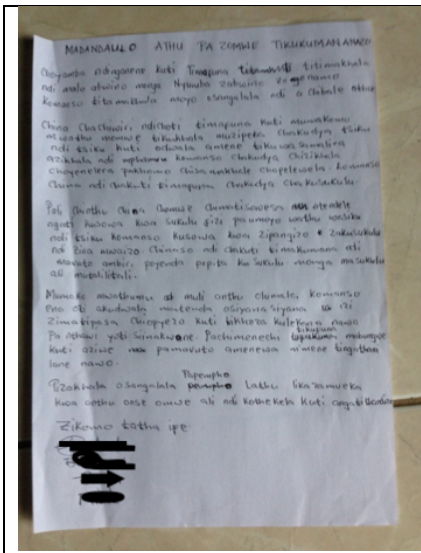 MADANDAULO ATHU PA ZOMWE TIKUKUMANANAZO
Choyamba ndinganene kuti Timapuna titamakhala
ndi malo abwino monga Nyumba zabwino zogonamo
komanso titamakhala moyo osangalala ndi achibale athu
China Chachiwiri ndichoti timapuna kuti muwakomu
m'wathu momwe tikukhala muzipeteka Chakudya tsiku
ndi tsiku kuti odwala amene tikuwasamalira
azikhala ndi komanso chakudya chizikhala
choyenelera pakhomo Chisamakhale chopelewela. komanso
China ndi chakuti timapuna chakudya chakusukulu.
Poti Chinthu China Chomwe Chimatisowesa mtendele
ogati kusowa kwa sukulu fizi paumoyo wathu watsiku
ndi tsiku komanso kusowa kwa zipangizo zakusukulu
ndi zina mwaizo Chinanso ndi chakuti timakumana ndi
mavuto ambiri poyenda popita ku sukulu monga masukulu
ali mutalitali.
Mamake mwathumu muli anthu olumale, komanso
eno oti akudwala matenda osiyanasiyana izi
zimatipasa chiopyezo kuti tikhoza kulekana nawo
Pa nthawi yoti sinakwane. Pachimenechi tikupuna
kuti aziwe pamavuto amenewa amene tingathan
lane nawo.
Tizakhala osangalala Papempho Lathu likazamveka
kwa anthu onse omwe ali ndi kuthekela kuti angatithandize
Zikomo tatha ife.